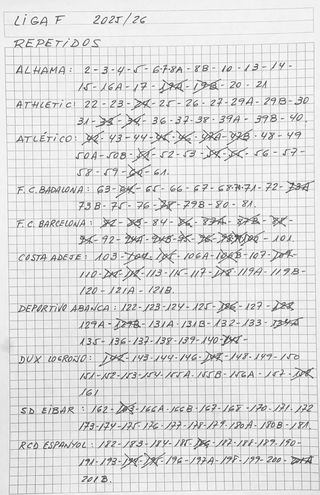 LIGA F 2025/26
REPETIDOS
ALHAMA: 2-3-4-5-6-7-8A-8B-10-13-14-
15-16A-17-19A-19B-20-21
ATHLETIC: 22-23-24-25-26-27-29A-29B-30
31-33-34-36-37-38-39A-39B-40
ATLÉTICO: 42-43-44-45-46-47A-47B-48-49
50A-50B-51-52-53-54-55-56-57-
58-59-60-61.
F.C. BADALONA: 63-64-65-66-67-68-71-72-73A
73B-75-76-78-79B-80-81.
F.C. BARCELONA: 82-83-84-86-87A-87B-88-
92-101
COSTA ADEJE: 103-104-105-106A-106B-107-109-
110-113-115-117-118-119A-119B-
120-121A-121B.
DEPORTIVO ABANCA: 122-123-124-125-126-127-128
129A-129B-131A-131B-132-133-134A
135-136-137-138-139-140-141-
DUX LOGROÑO: 142-143-144-146-147-148-149-150
151-152-153-154-155A-155B-156A-157-158
161
SD EIBAR: 162-163-166A-166B-167-168-170-171-172
173-174-175-176-177-178-179-180A-180B-181.
RCD ESPANYOL: 182-183-184-185-186-187-188-189-190-
191-193-194-195-196-197A-198-199-200-201A
201B.